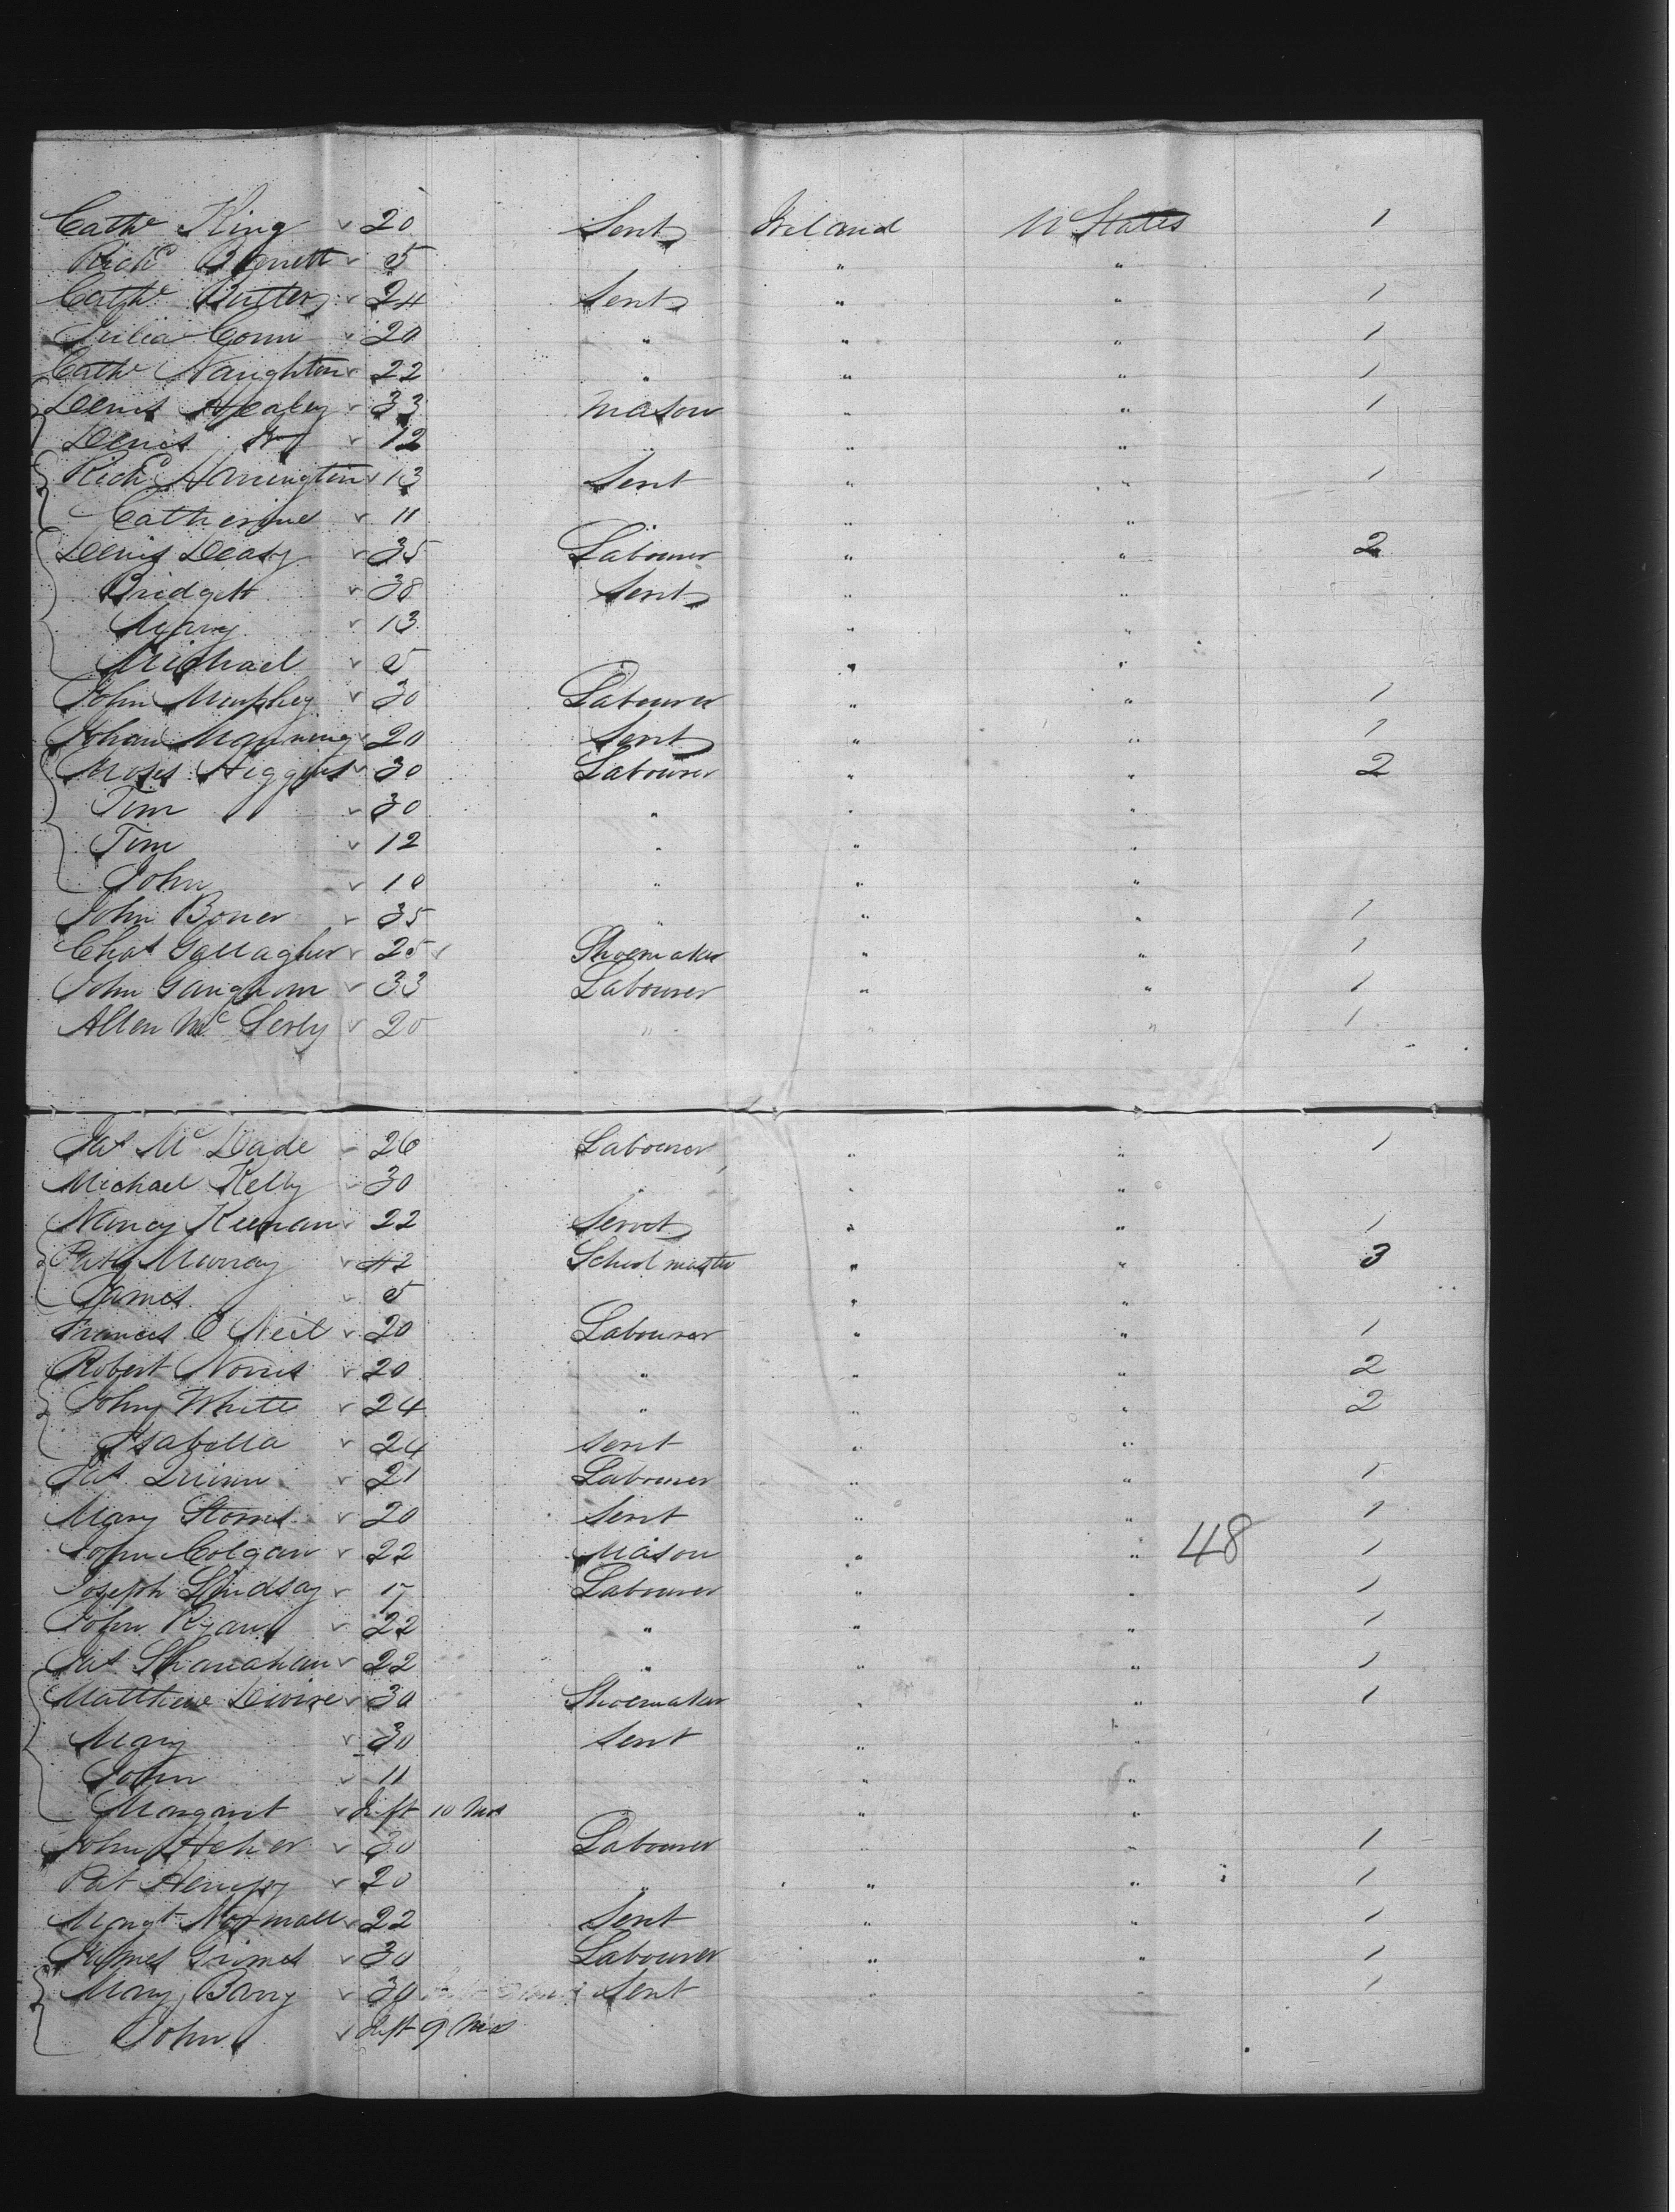 Cathe King 20 Sert Ireland U States 1
Richd Barrett 5 " "
Cathe Butler 24 Sert " " 1
Julia Conn 20 " " " 1
Cathe Naughton 22 " " " 1
Denis Healey 33 Mason " " 1
Denis 12 " " "
Richd Harrington 13 Sert " " 1
Catherine 11 " "
Denis Deasy 35 Labourer " " 2
Bridgett 38 Sert " "
Mary 13 " "
Michael 5 " "
John Murphey 30 Labourer " " 1
Johan Manning 20 Sert " " 1
Moses Higgins 30 Labourer " " 2
Tim 30 " " "
Tim 12 " " "
John 10 " " "
John Boner 35 " " " 1
Chas Gallagher 25 Shoemaker " " 1
John Gaughom 33 Labourer " " 1
Allen Mc 20 " " " 1
Jas Mc Dade 26 Labourer " " 1
Michael Kelly 30 " " "
Nancy Keenan 22 Servt " " 1
Patk Murray 42 School master " " 3
James 5 " "
Francis O Neil 20 Labourer " " 1
Robert Norris 20 " " " 2
John White 24 " " " 2
Isabella 24 Sert " "
Pat Quinn 21 Labourer " " 1
Mary Storrs 20 Sert " " 1
John Colgan 22 Mason " " 48 1
Joseph Lindsay 17 Labourer " " 1
John Ryan 22 " " " 1
Jas Shanahan 22 " " " 1
Matthew Devine 30 Shoemaker " " 1
Mary 30 Sert " "
John 11 " "
Margaret Inft 10 Mos " "
John Heher 30 Labourer " " 1
Pat Hempy 20 " " " 1
Margt Normall 22 Sert " " 1
James Grimes 30 Labourer " " 1
Mary Barry 30 Sert " " 1
John Inft 9 Mos